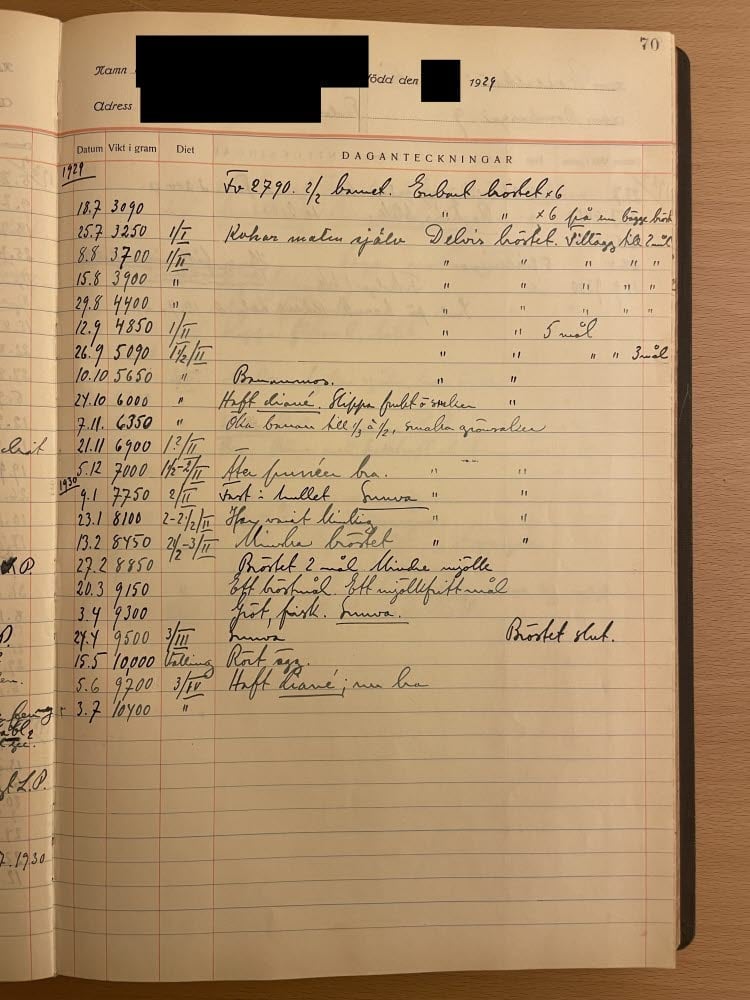 70
Namn
född den 1929
Adress
Datum Vikt i gram Diet DAGANTECKNINGAR
1929
Fv 2790. 2/2 barnet. Enbart bröstet x6
18.7 3090 " " x6 från en bägge bröst
25.7 3250 1/I Kokar maten själv Delvis bröstet. Tillägg till 2 mål
8.8 3700 1/II " " " " "
15.8 3900 " " " " " "
29.8 4400 " " " " " "
12.9 4850 1/II " " 5 mål
26.9 5090 1½/II " " " " 3 mål
10.10 5650 " Bananmos. " "
24.10 6000 " Haft diarré. Slippa frukt ö "
7.11. 6350 " Öka banan till 1/3 à 1/2, smaka grönsaker
21.11 6900 1?/II
5.12 7000 1½-2/II Äter puréer bra. " "
1930
9.1 7750 2/II Fast i hullet Snuva " "
23.1 8100 2-2½/II Har varit " "
13.2 8450 2½-3/II Mindre bröstet " "
27.2 8850 Bröstet 2 mål Mindre mjölk
20.3 9150 Ett bröstmål. Ett mjölkfritt mål
3.4 9300 Gröt, fisk. Snuva.
24.4 9500 3/III Snuva Bröstet slut.
15.5 10,000 Välling Rört ägg.
5.6 9700 3/IV Haft diarré; nu bra
3.7 10400 "
P.
L.P.
7.1930